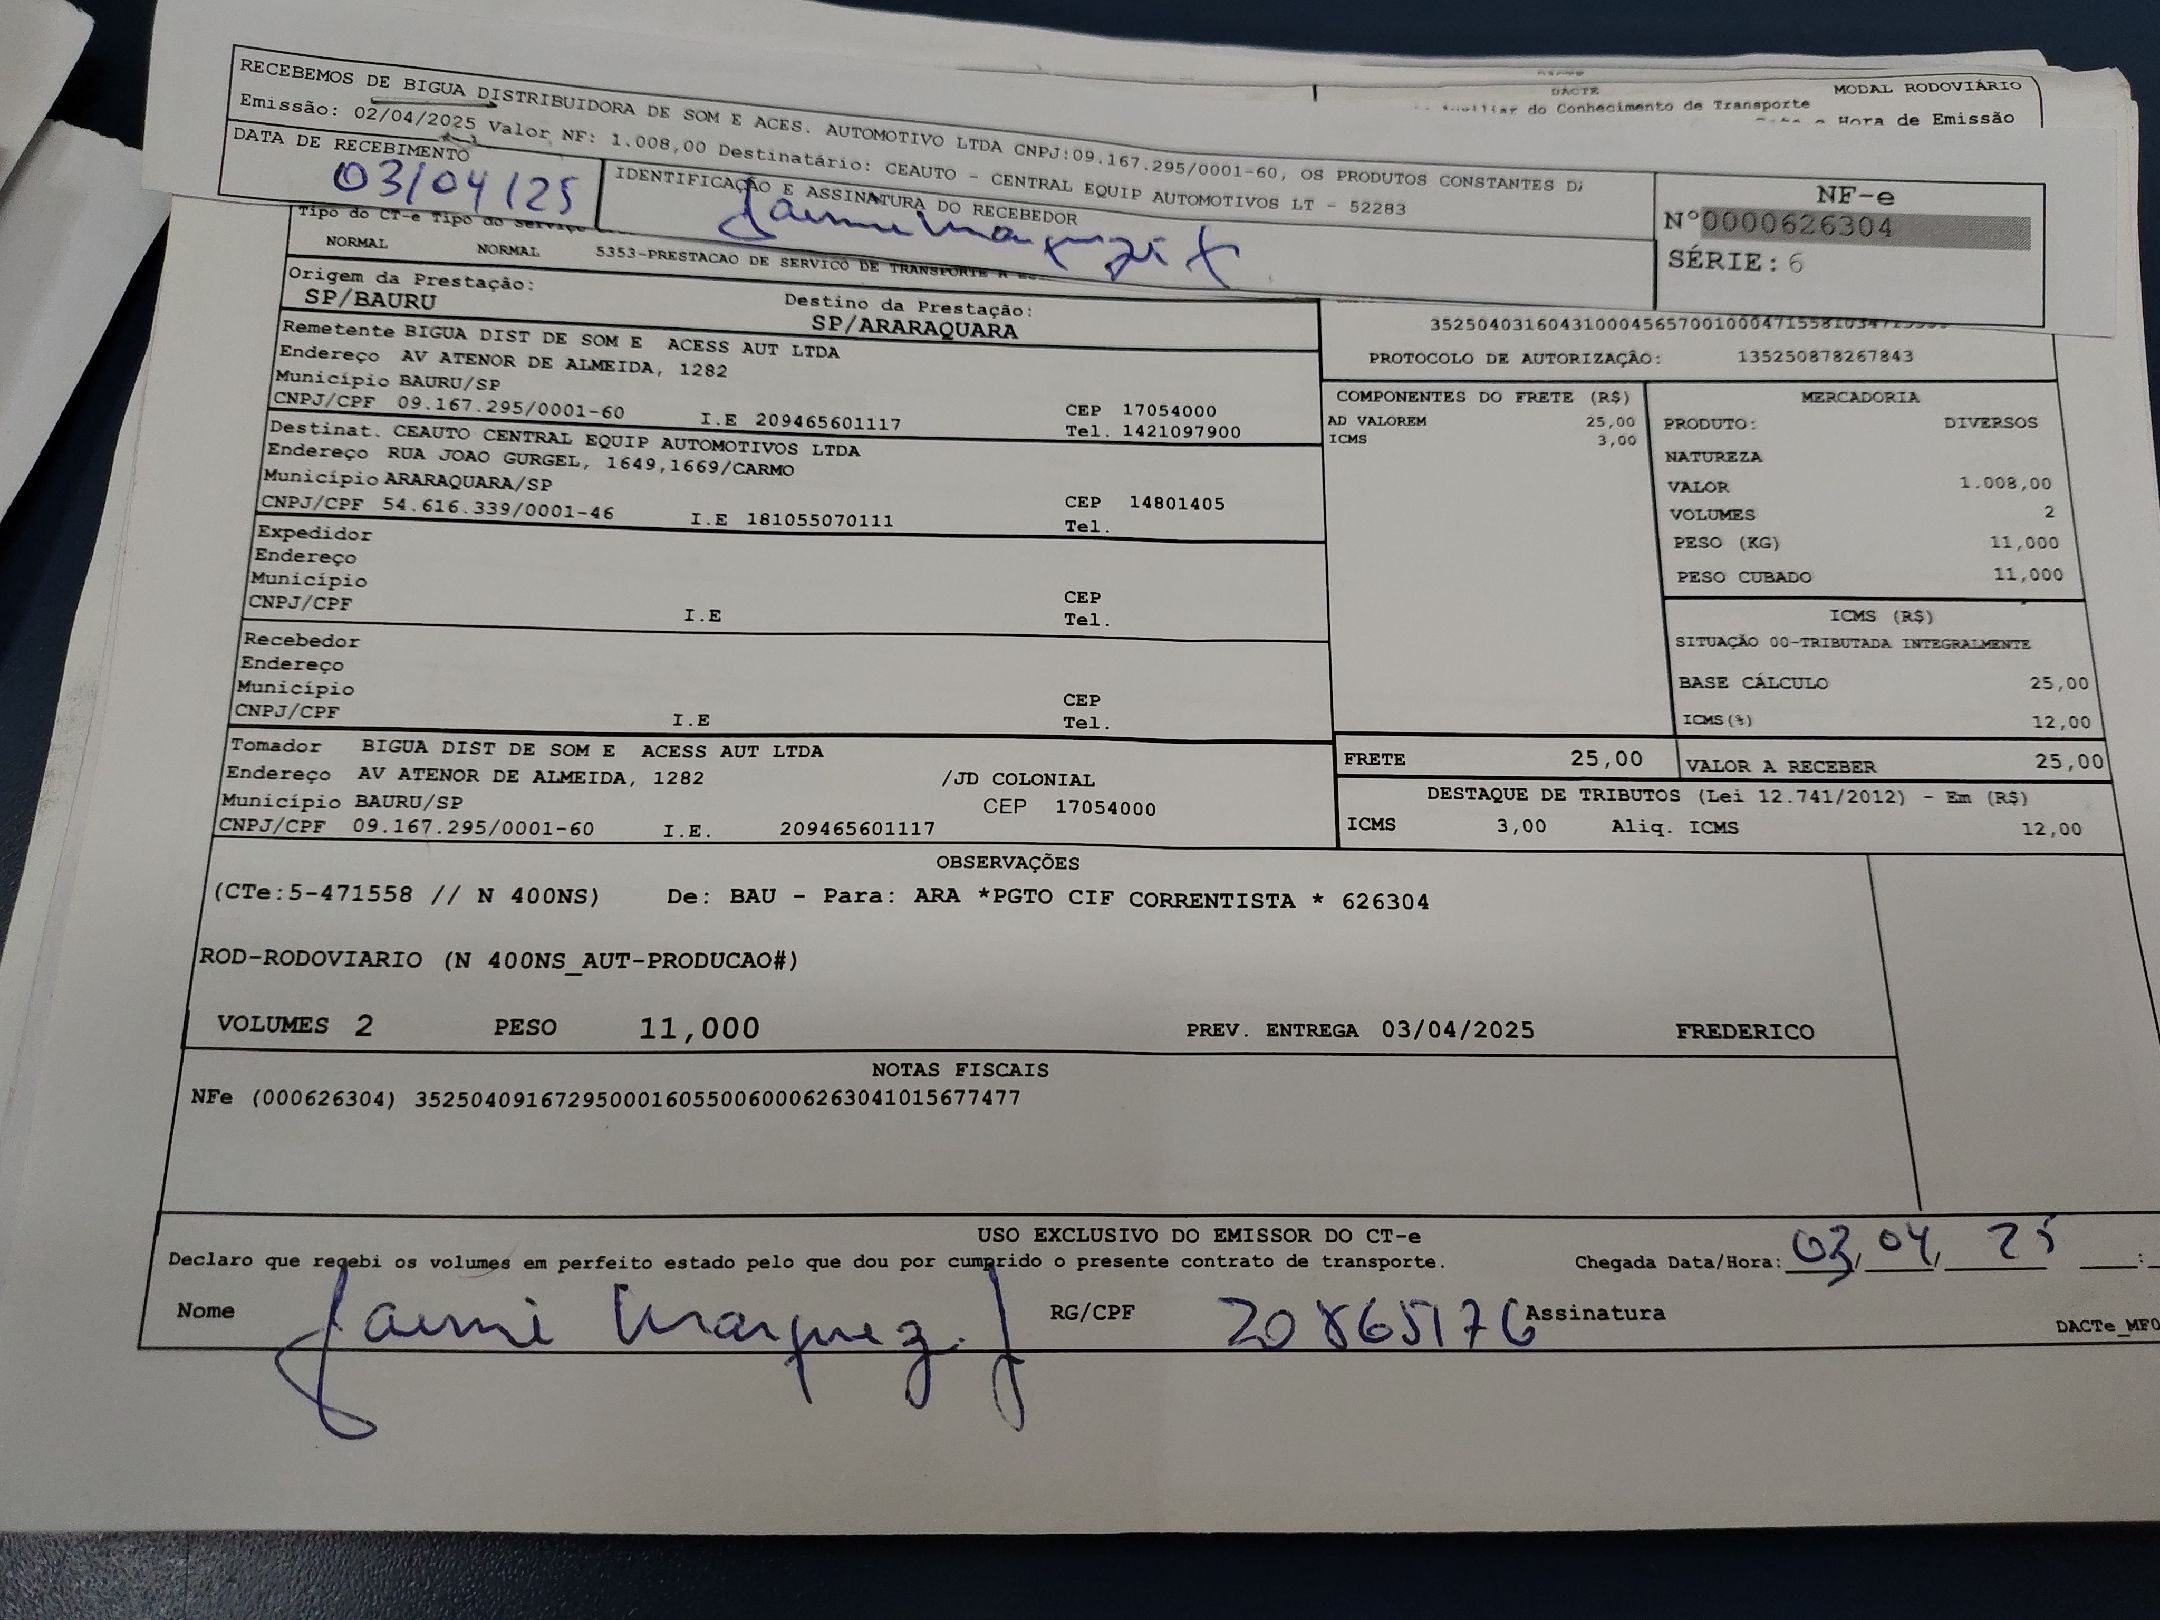 RECEBEMOS DE BIGUA DISTRIBUIDORA DE SOM E ACES. AUTOMOTIVO LTDA CNPJ:09.167.295/0001-60, OS PRODUTOS CONSTANTES
Emissão: 02/04/2025 Valor NF: 1.008,00 Destinatário: CEAUTO - CENTRAL EQUIP AUTOMOTIVOS LT - 52283
DATA DE RECEBIMENTO
03/04/25
IDENTIFICAÇÃO E ASSINATURA DO RECEBEDOR
NF-e
N°0000626304
SÉRIE: 6
DACTE
MODAL RODOVIÁRIO
do Conhecimento de Transporte
Hora de Emissão
Tipo do CT-e Tipo do Serviço
NORMAL NORMAL 5353-PRESTACAO DE SERVICO DE TRANSPORTE A
Origem da Prestação:
SP/BAURU
Destino da Prestação:
SP/ARARAQUARA
PROTOCOLO DE AUTORIZAÇÃO: 135250878267843
Remetente BIGUA DIST DE SOM E ACESS AUT LTDA
Endereço AV ATENOR DE ALMEIDA, 1282
Município BAURU/SP CEP 17054000
CNPJ/CPF 09.167.295/0001-60 I.E 209465601117 Tel. 1421097900
Destinat. CEAUTO CENTRAL EQUIP AUTOMOTIVOS LTDA
Endereço RUA JOAO GURGEL, 1649,1669/CARMO
Município ARARAQUARA/SP CEP 14801405
CNPJ/CPF 54.616.339/0001-46 I.E 181055070111 Tel.
Expedidor
Endereço
Município CEP
CNPJ/CPF I.E Tel.
Recebedor
Endereço
Município CEP
CNPJ/CPF I.E Tel.
Tomador BIGUA DIST DE SOM E ACESS AUT LTDA
Endereço AV ATENOR DE ALMEIDA, 1282 /JD COLONIAL
Município BAURU/SP CEP 17054000
CNPJ/CPF 09.167.295/0001-60 I.E. 209465601117
COMPONENTES DO FRETE (R$)
AD VALOREM 25,00
ICMS 3,00
MERCADORIA
PRODUTO: DIVERSOS
NATUREZA
VALOR 1.008,00
VOLUMES 2
PESO (KG) 11,000
PESO CUBADO 11,000
ICMS (R$)
SITUAÇÃO 00-TRIBUTADA INTEGRALMENTE
BASE CÁLCULO 25,00
ICMS(%) 12,00
FRETE 25,00 VALOR A RECEBER 25,00
DESTAQUE DE TRIBUTOS (Lei 12.741/2012) - Em (R$)
ICMS 3,00 Aliq. ICMS 12,00
OBSERVAÇÕES
(CTe:5-471558 // N 400NS) De: BAU - Para: ARA *PGTO CIF CORRENTISTA * 626304
ROD-RODOVIARIO (N 400NS_AUT-PRODUCAO#)
VOLUMES 2 PESO 11,000 PREV. ENTREGA 03/04/2025 FREDERICO
NOTAS FISCAIS
NFe (000626304) 35250409167295000160550060006263041015677477
USO EXCLUSIVO DO EMISSOR DO CT-e
Declaro que recebi os volumes em perfeito estado pelo que dou por cumprido o presente contrato de transporte. Chegada Data/Hora: 03/04/25 :
Nome Jaemi Marquez RG/CPF 20865176 Assinatura
DACTe_MF0